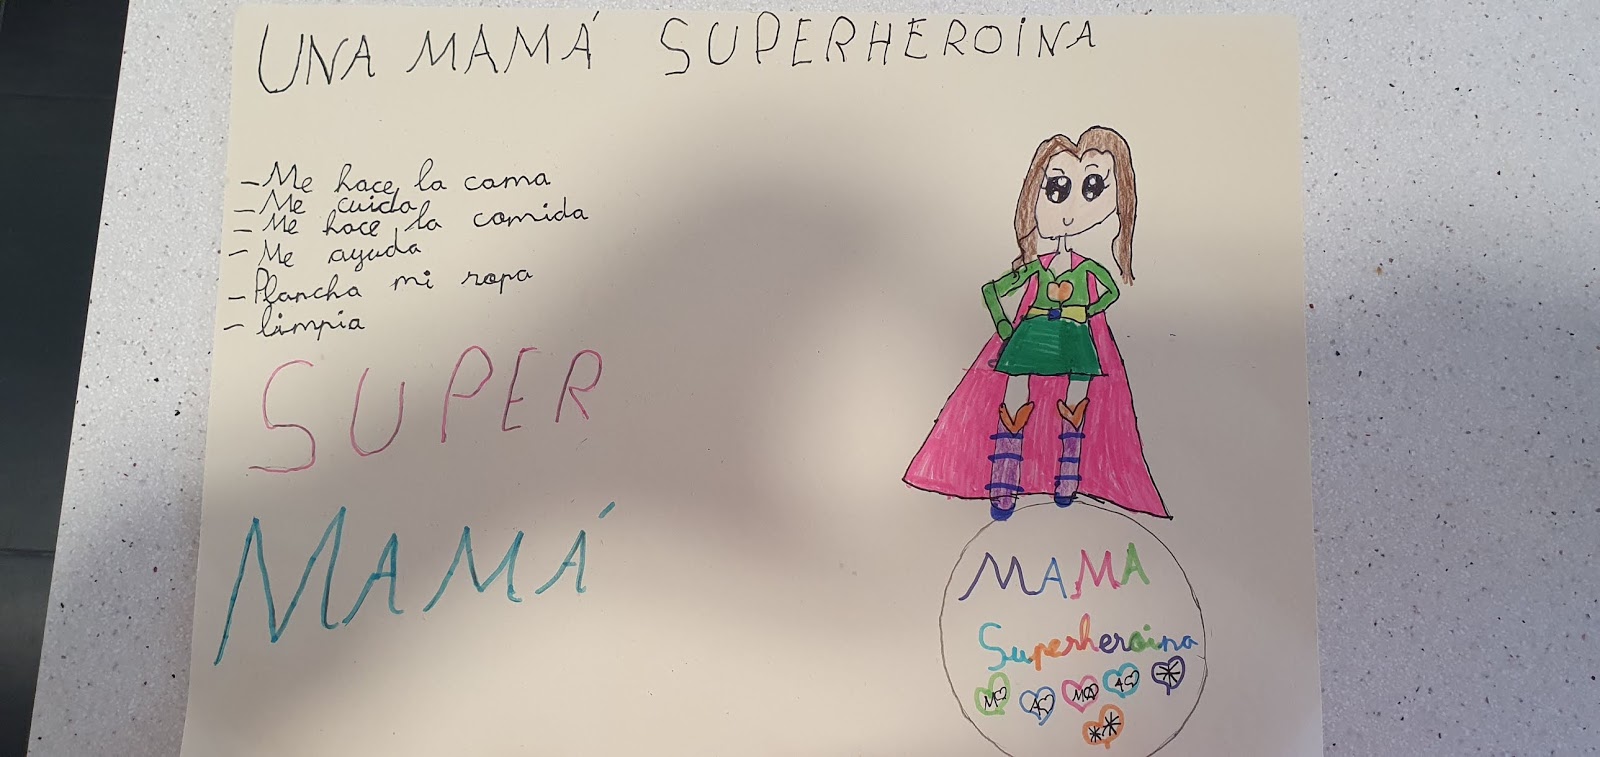 UNA MAMÁ SUPERHEROINA
-Me hace la cama
-Me cuida
-Me hace la comida
-Me ayuda
-Plancha mi ropa
-limpia
SUPER
MAMÁ
MAMA
Superheroina